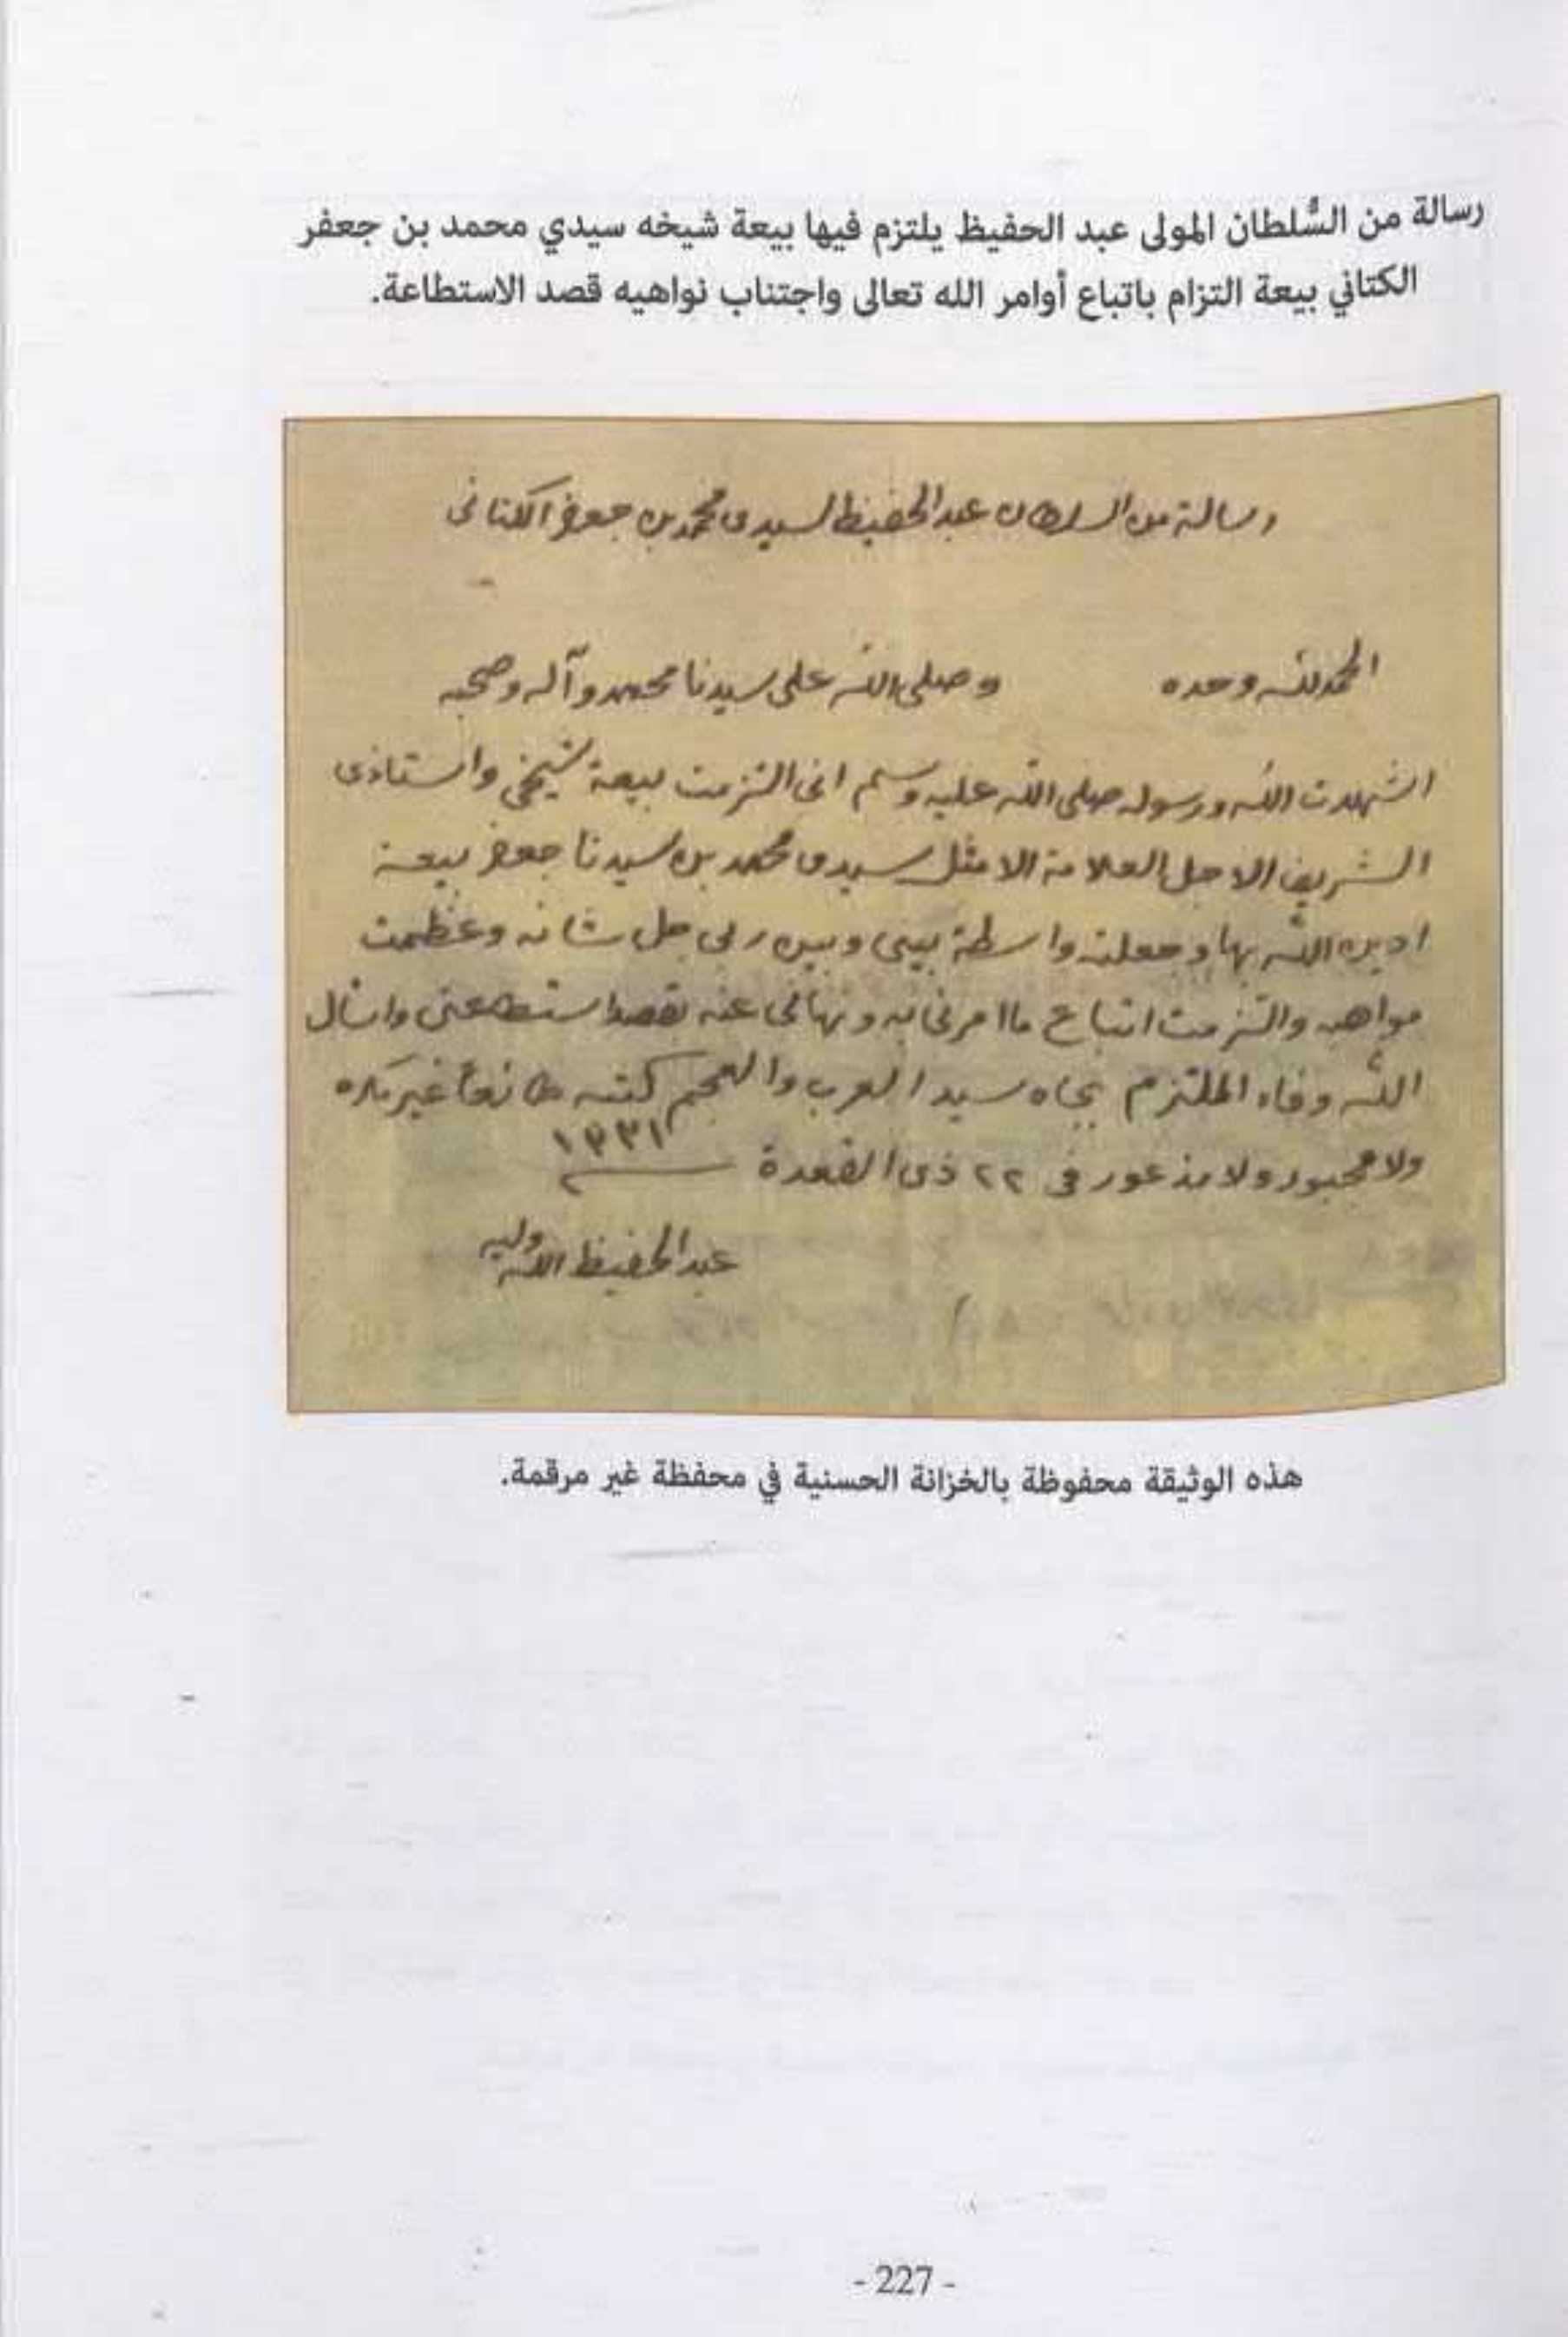 رسالة من السُّلطان المولى عبد الحفيظ يلتزم فيها بيعة شيخه سيدي محمد بن جعفر
الكتاني بيعة التزام باتباع أوامر الله تعالى واجتناب نواهيه قصد الاستطاعة.
رسالة من السلطان عبد الحفيظ لسيدي محمد بن جعفر الكتاني
الحمد لله وحده وصلى الله على سيدنا محمد وآله وصحبه
اشهدت الله ورسوله صلى الله عليه وسلم انى التزمت بيعة شيخي واستاذى
الشريف الاجل العلامة الامثل سيدى محمد بن سيدنا جعفر بيعة
ادين الله بها وجعلته واسطة بينى وبين ربى جل شانه وعظمت
مواهبه والتزمت اتباع ما امرنى به ونهانى عنه بقصد استطاعتى واسال
الله وفاء الملتزم بجاه سيد العرب والعجم كتبه طائعا غير مكره
ولا مجبور ولا مذعور فى ٢٢ ذى القعدة ١٣٣١
عبد الحفيظ الله وليه
هذه الوثيقة محفوظة بالخزانة الحسنية في محفظة غير مرقمة.
- 227 -